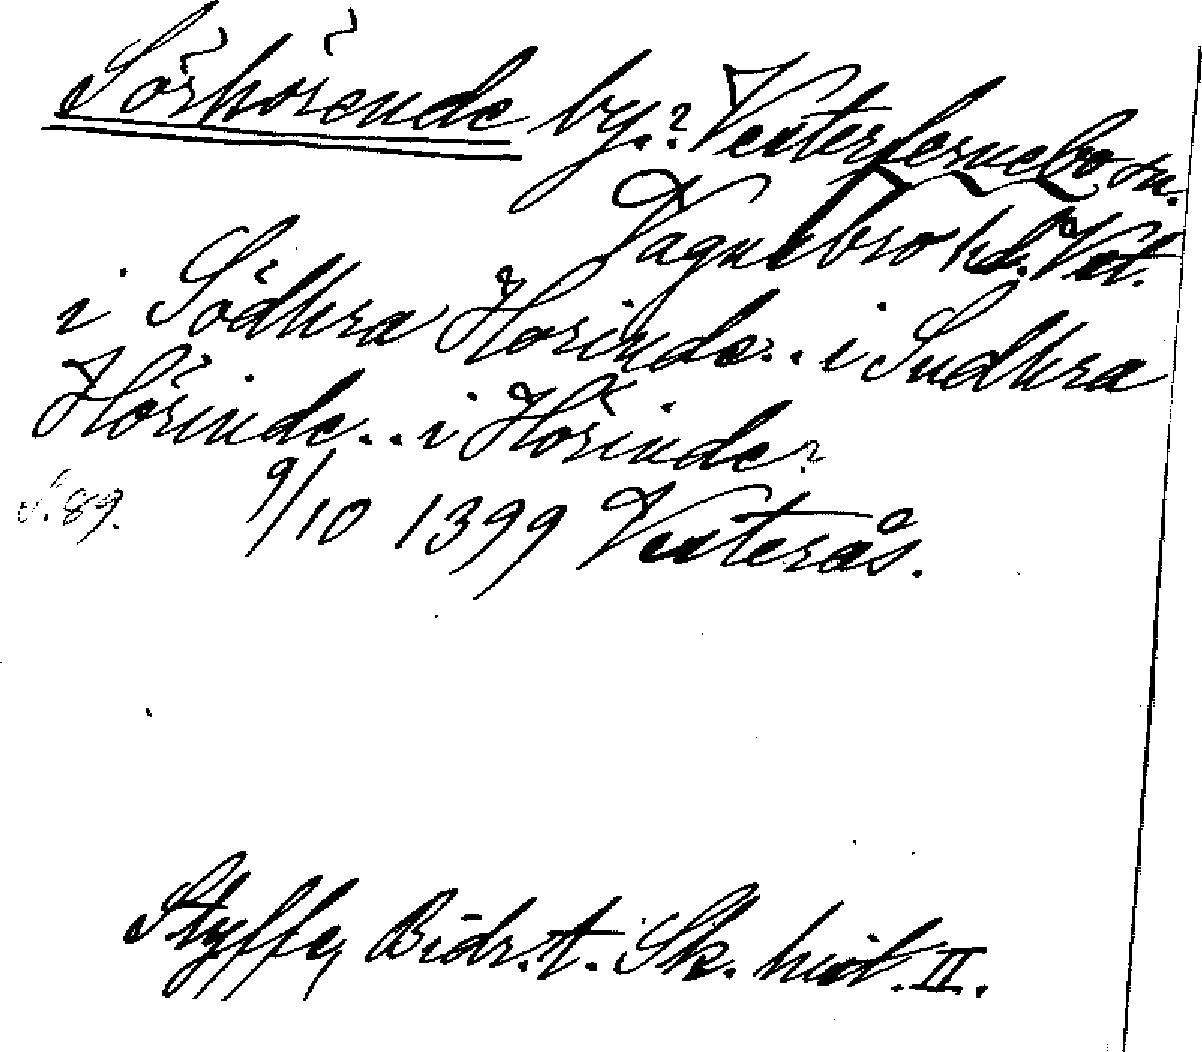 Sörhörende by? Vesterfernebo sn.
Vagnsbro hd. Vst.
i Södhra Hörinde.. i Sudhra
Hörinde.. i Hörinde?
s. 89. 9/10 1399 Vesterås.
Styffe, Bidr. t. Sk. hist. II.